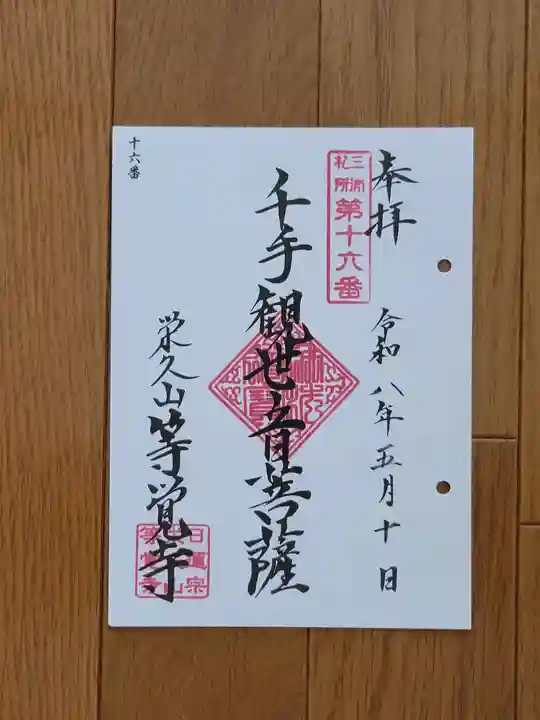 奉拝
令和八年五月十日
三浦
札所
第十六番
千手観世音菩薩
栄久山等覚寺
日蓮宗
十六番